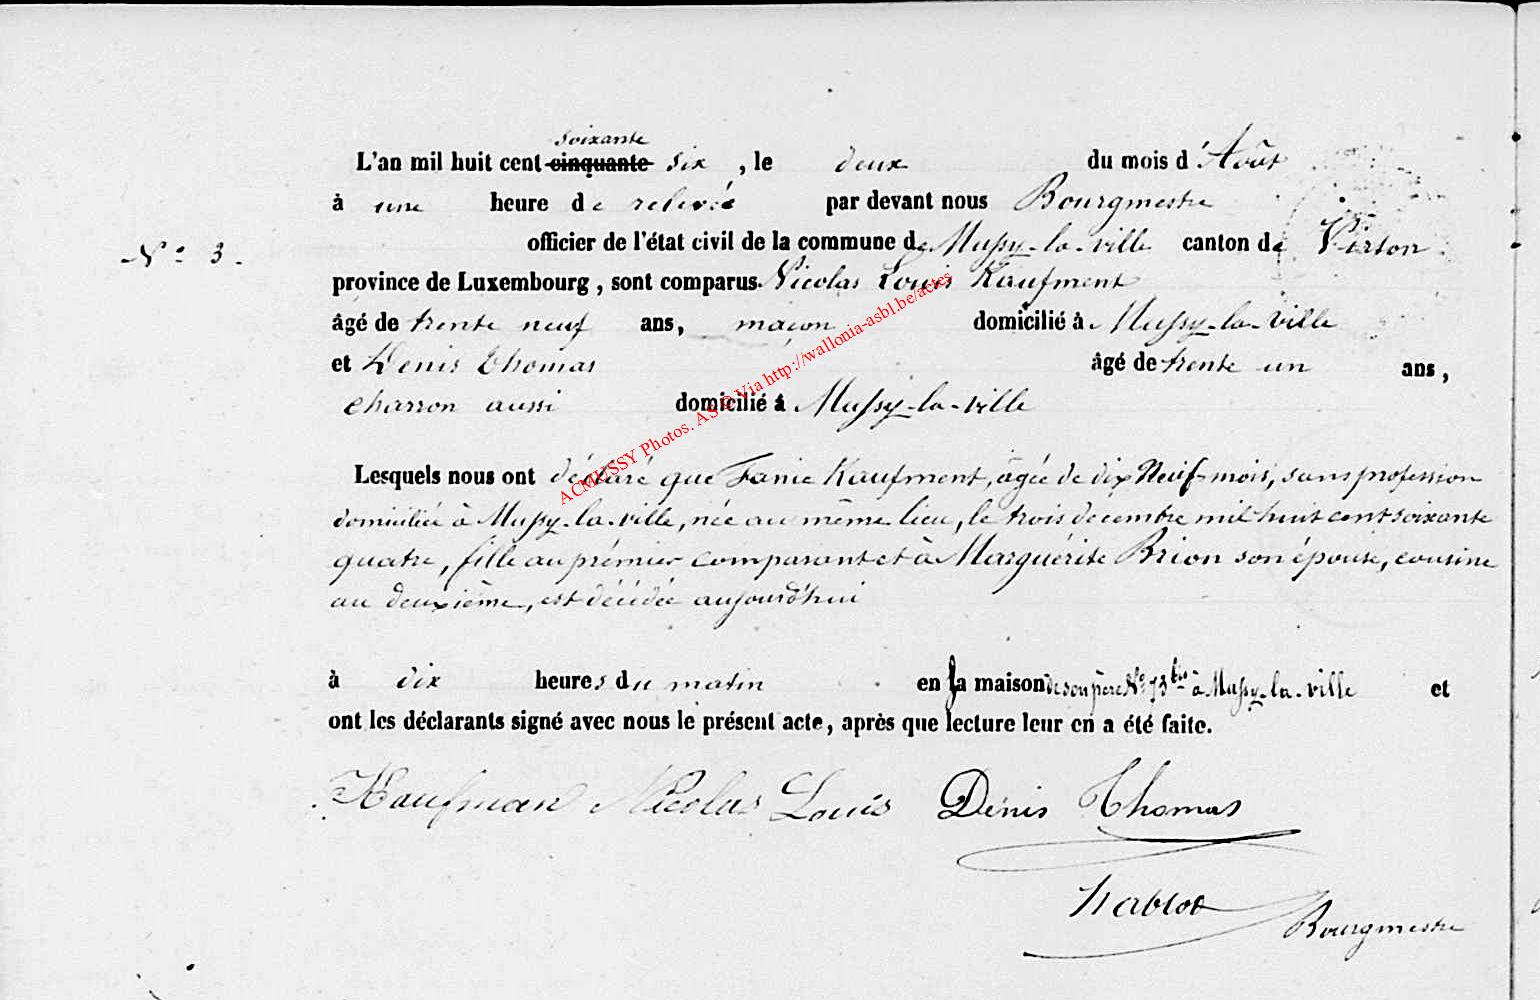 soixante
L'an mil huit cent cinquante six, le deux du mois d'Août
à une heure de relevée par devant nous Bourgmestre
N° 3. officier de l'état civil de la commune de Mussy-la-ville canton de Virton
province de Luxembourg, sont comparus Nicolas Louis Kaufment
âgé de trente neuf ans, maçon domicilié à Mussy-la-Ville
et Denis Thomas âgé de trente un ans,
charron aussi domicilié à Mussy-la-ville
Lesquels nous ont déclaré que Fanie Kaufment, âgée de dix Neuf mois, sans profession
domiciliée à Mussy-la-ville, née au même lieu, le trois decembre mil huit cent soixante
quatre, fille au prémier comparant et à Marguérite Brion son épouse, cousine
au deuxième, est décédée aujourd'hui
à dix heures du matin en la maison de son père N° 73 bis à Mussy-la-ville et
ont les déclarants signé avec nous le présent acte, après que lecture leur en a été faite.
Kaufman Nicolas Louis Denis Thomas
Bourgmestre
ACMUSSY Photos. AS@ Via http://wallonia-asbl.be/actes